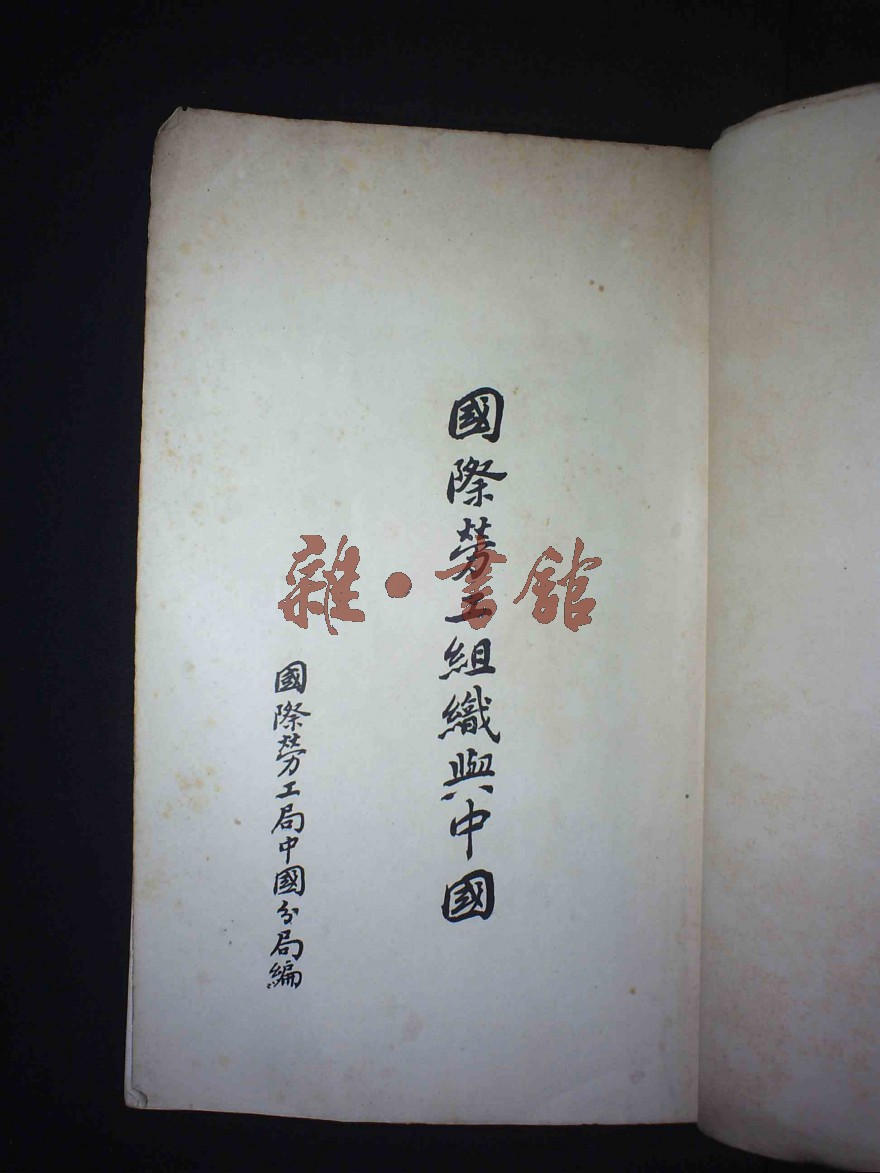 國際勞工組織與中國
國際勞工局中國分局編
雜·書館